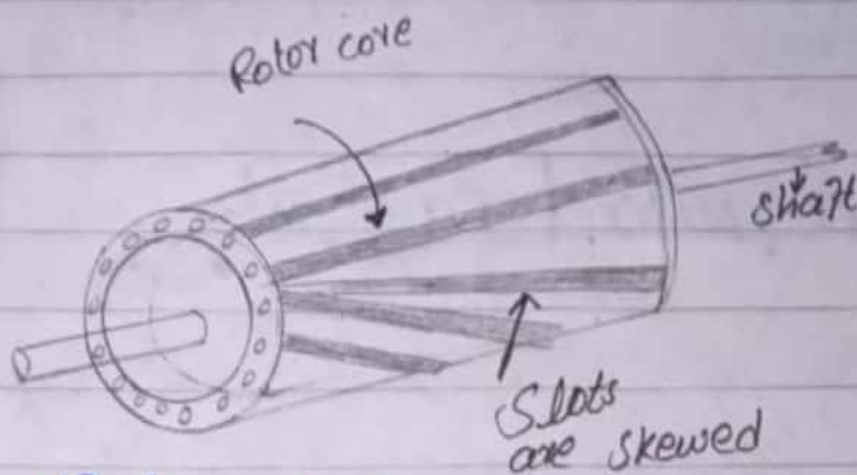 Rotor core
shaft
Slots
are skewed